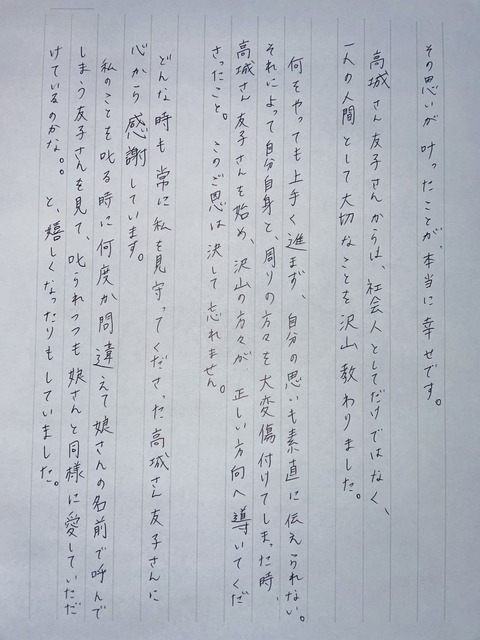 その思いが叶ったことが、本当に幸せです。
高城さん友子さんからは、社会人としてだけではなく、
一人の人間として大切なことを沢山教わりました。
何をやっても上手く進まず、自分の思いも素直に伝えられない。
それによって自分自身と、周りの方々を大変傷付けてしまった時、
高城さん友子さんを始め、沢山の方々が正しい方向へ導いてくだ
さったこと。このご恩は決して忘れません。
どんな時も常に私を見守ってくださった高城さん友子さんに
心から感謝しています。
私のことを叱る時に何度か間違えて娘さんの名前で呼んで
しまう友子さんを見て、叱られつつも娘さんと同様に愛していただ
けているのかな。。と、嬉しくなったりもしていました。